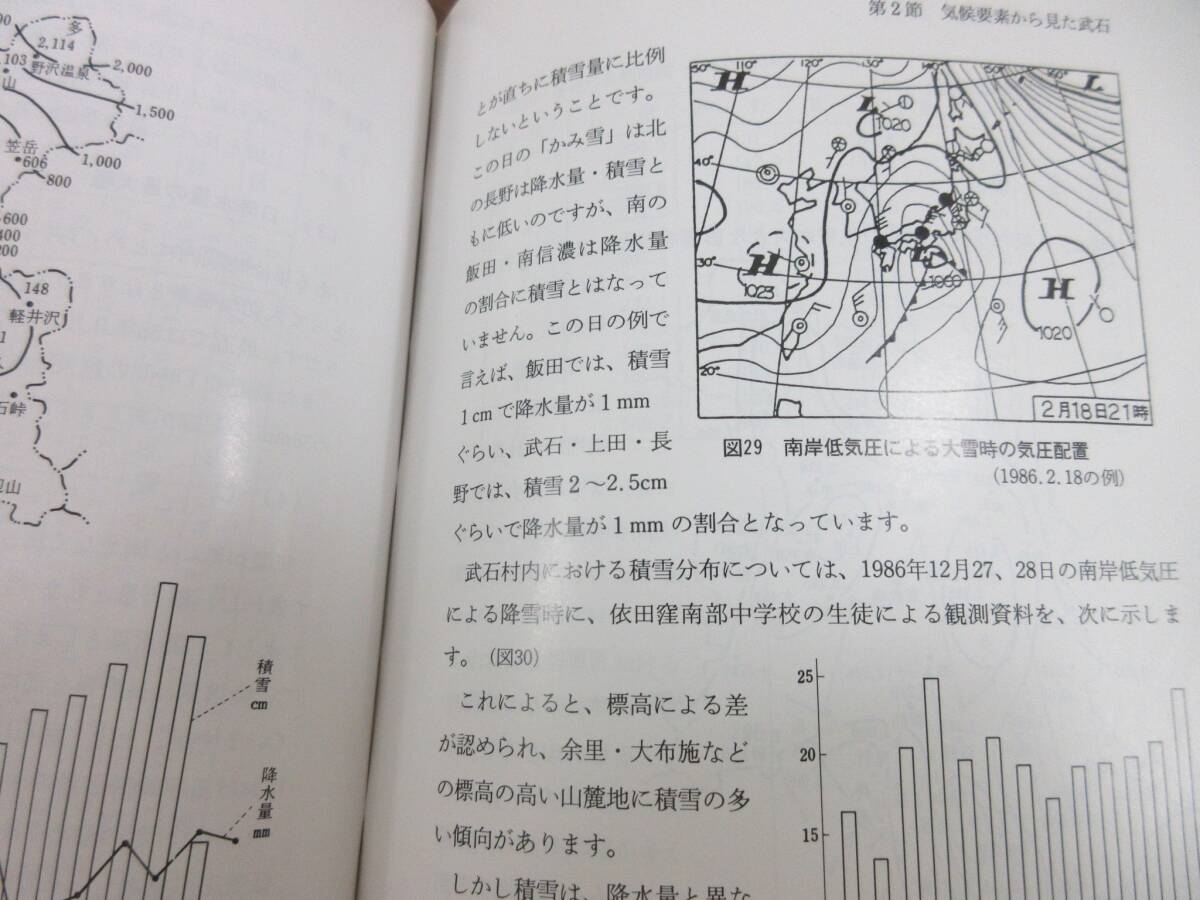 多
2,114
野沢温泉
2,000
103
山
1,500
笠岳
606
1,000
800
600
400
200
148
軽井沢
1
石峠
山
積雪
cm
降水量
mm
第2節 気候要素から見た武石
とが直ちに積雪量に比例
しないということです。
この日の「かみ雪」は北
の長野は降水量・積雪と
もに低いのですが、南の
飯田・南信濃は降水量
の割合に積雪とはなって
いません。この日の例で
言えば、飯田では、積雪
1cmで降水量が1mm
ぐらい、武石・上田・長
野では、積雪2〜2.5cm
ぐらいで降水量が1mmの割合となっています。
H
110°
120°
130°
L
L
1020
40°
30°
H
1023
L
H
1020
20°
2月18日21時
図29 南岸低気圧による大雪時の気圧配置
(1986.2.18の例)
武石村内における積雪分布については、1986年12月27、28日の南岸低気圧
による降雪時に、依田窪南部中学校の生徒による観測資料を、次に示しま
す。(図30)
これによると、標高による差
が認められ、余里・大布施など
の標高の高い山麓地に積雪の多
い傾向があります。
しかし積雪は、降水量と異な
25
20
15